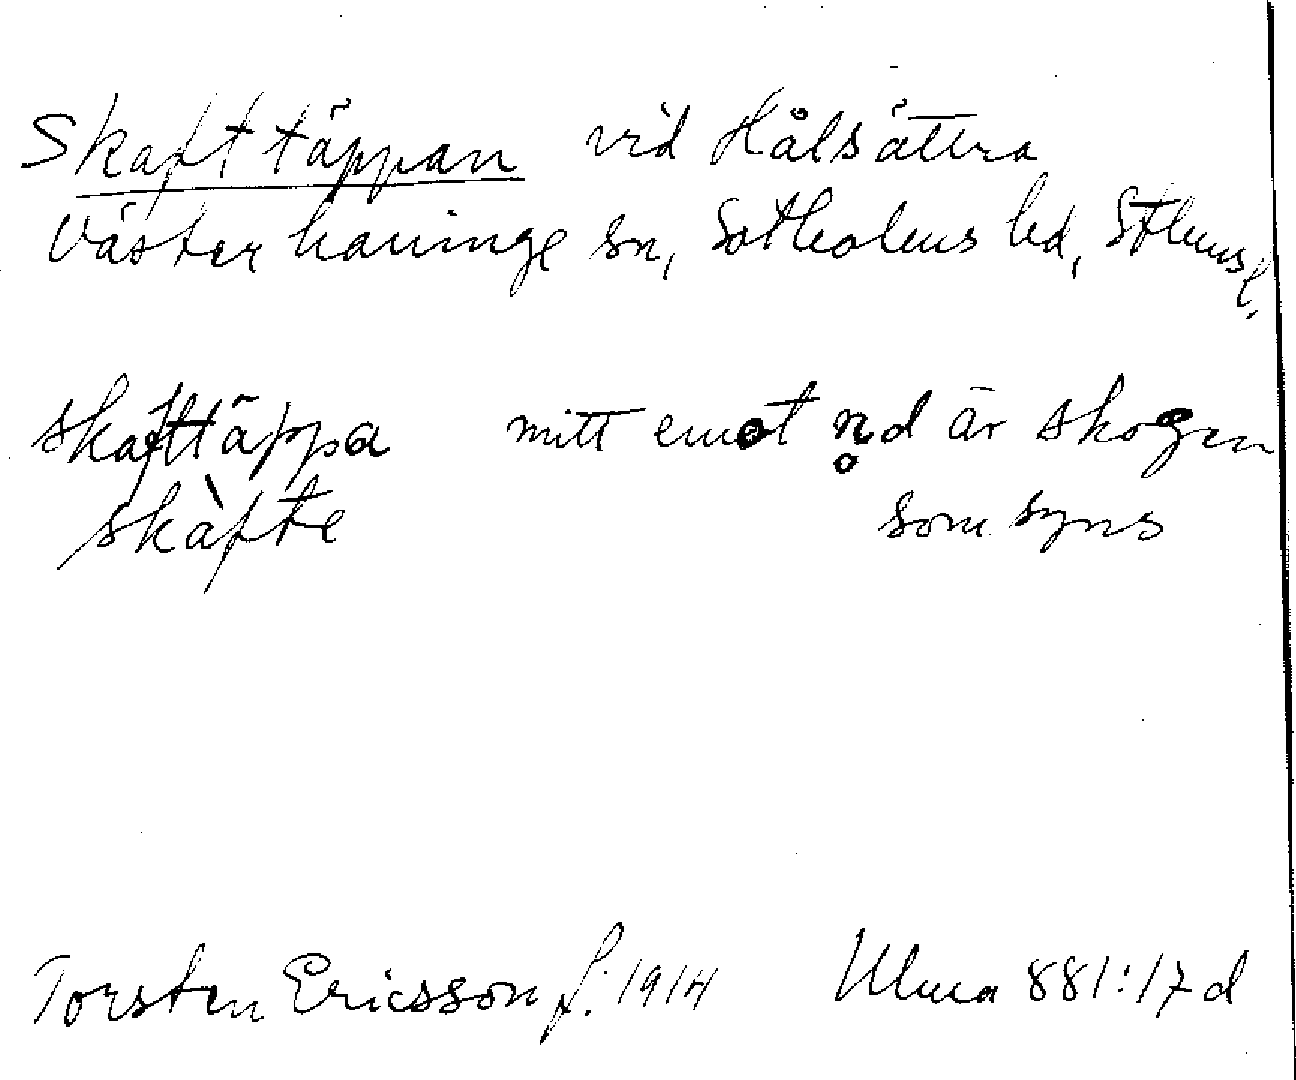 Skafttäppan vid Hålsättra
Västerhaninge sn, Sotholms hd, Sthms l.
skafttäppa mitt emot n̥d är skogen
skàfte som syns
Torsten Ericsson f. 1914 Uluma 881:17 d